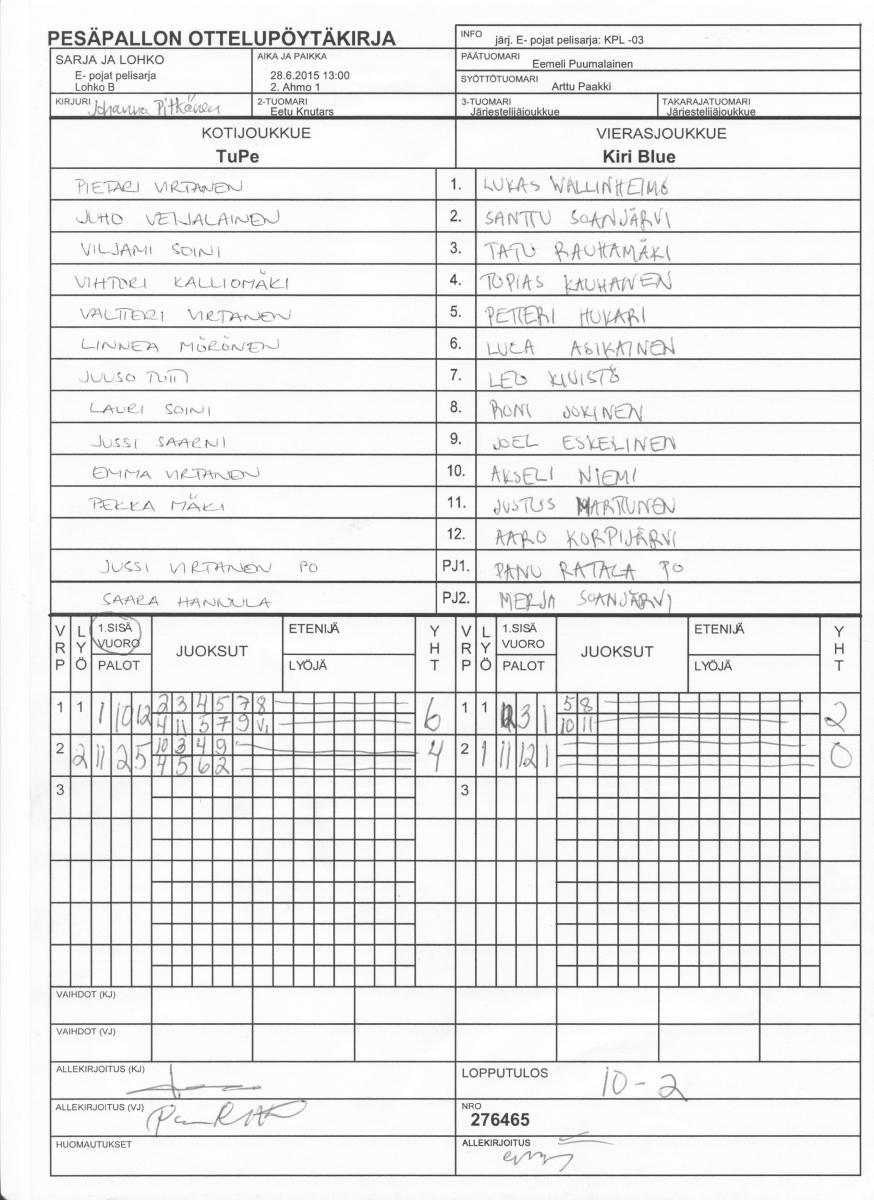 PESÄPALLON OTTELUPÖYTÄKIRJA
INFO järj. E- pojat pelisarja: KPL -03
SARJA JA LOHKO
E- pojat pelisarja
Lohko B
AIKA JA PAIKKA
28.6.2015 13:00
2. Ahmo 1
PÄÄTUOMARI
Eemeli Puumalainen
SYÖTTÖTUOMARI
Arttu Paakki
KIRJURI Johanna Pitkänen
2-TUOMARI
Eetu Knutars
3-TUOMARI
Järjestelijäjoukkue
TAKARAJATUOMARI
Järjestelijäjoukkue
KOTIJOUKKUE
TuPe
VIERASJOUKKUE
Kiri Blue
PIETARI VIRTANEN 1. LUKAS WALLINHEIMO
JUHO VEIJALAINEN 2. SANTTU SOANJÄRVI
VILJAMI SOINI 3. TATU RAUHAMÄKI
VIHTORI KALLIOMÄKI 4. TOPIAS KAUHANEN
VALTTERI VIRTANEN 5. PETTERI HUKARI
LINNEA MÖRÖNEN 6. LUCA ASIKAINEN
JUUSO TUTTI 7. LEO KIVISTÖ
LAURI SOINI 8. RONI JOKINEN
JUSSI SAARNI 9. JOEL ESKELINEN
EMMA VIRTANEN 10. AKSELI NIEMI
PEKKA MÄKI 11. JUSTUS MARTTUNEN
12. AARO KORPIJÄRVI
JUSSI VIRTANEN PO PJ1. PANU RATALA PO
SAARA HANNULA PJ2. MERJA SOANJÄRVI
VRP LYÖ 1.SISÄ VUORO PALOT JUOKSUT ETENIJÄ LYÖJÄ YHT VRP LYÖ 1.SISÄ VUORO PALOT JUOKSUT ETENIJÄ LYÖJÄ YHT
1 1 1 10 12 2 3 4 5 7 8 6 1 1 3 1 5 8 2
4 11 5 7 9 V1 10 11
2 2 11 2 5 10 3 4 9 4 2 1 11 12 1 0
4 5 6 2
3 3
VAIHDOT (KJ)
VAIHDOT (VJ)
ALLEKIRJOITUS (KJ)
LOPPUTULOS 10-2
ALLEKIRJOITUS (VJ)
NRO
276465
HUOMAUTUKSET
ALLEKIRJOITUS